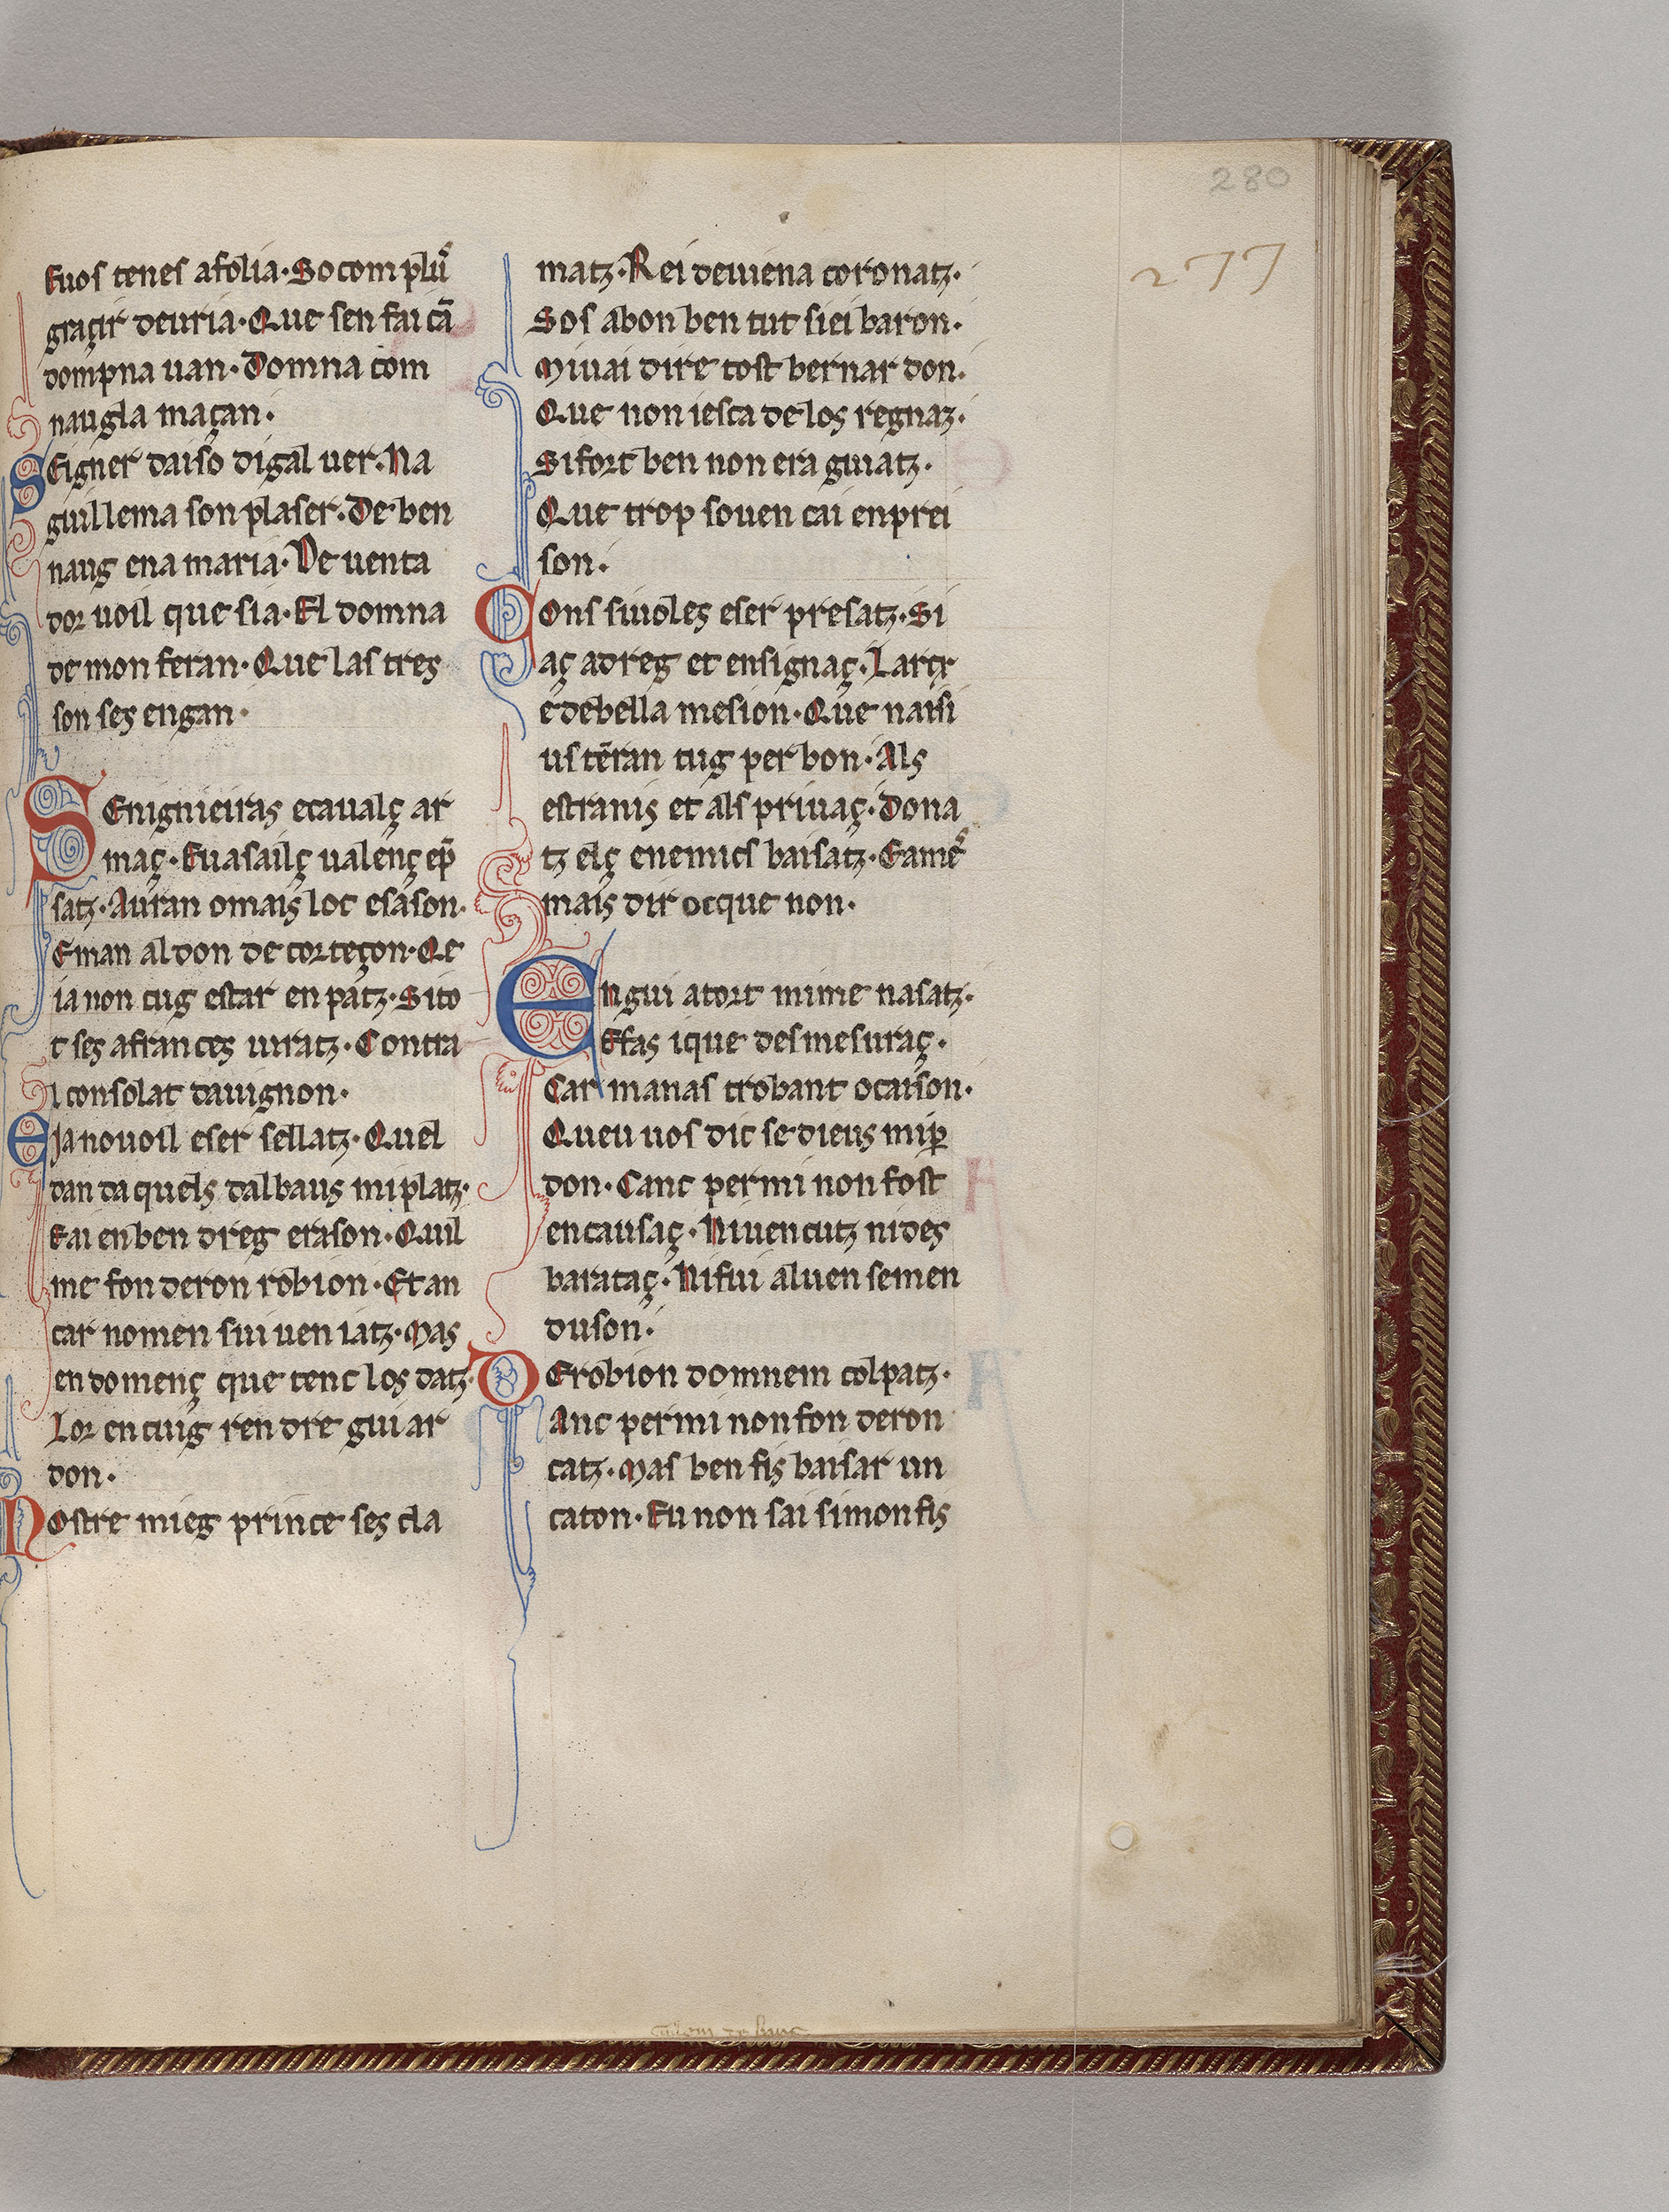 280
277
Euos tenes afolia·Socom plus̃
graçir deuria·Que sen fai cã
dompna uan·Domna com
naugla maçan·
SEigner daiso digal uer·Na
guillema son plaser·De ben
naug ena maria·De uenta
dor uoil que sia·El domna
de mon feran·Que las tres
son ses engan·
SEnignieiras ecaualç ar
maç·Euasailç ualenç ep̃
satz·Auran omais loc esason·
Eman aldon de corteçon·Qe
ia non cug estar en patz·Sito
t ses afrances uiratz·Contra
l consolat dauignon·
EJa nouoil eser sellatz·Quel
dan da quels dalbaus mi platz·
Eai en ben dreg eraison·Quil
me fon deron robion·Et an
car nomen sui uen iatz·Mas
en domenç que tenc los datz·
Lor en cuig ren dre guiar
don·
NOstre mieg prince ses cla
matz·Rei deuiena coronatz·
Sos abon ben tut siei baron·
Miuai dire tost bernar don·
Que non iesca de los regnaz·
Sifort ben non era guiatz·
Que trop souen cai enprei
son·
COns siuoles eser presatz·Si
aç adreg et ensignaç·Larcx
e debella mesion·Que naisi
us tẽran tug per bon·Als
estranis et als priuaç·Dona
tz elç enemics baisatz·Eame͛
mais dir oc que non·
ENgui atort mime nasatz·
Efas ique desmesuraç·
Car manas trobant ocaison·
Queu uos dic se dieus mi ꝑ
don·Canc per mi non fost
encausaç·Niuencutz nides
barataç·Nifui aluen semen
duson·
DErobion domnem colpatz·
Anc per mi non fon deron
catz·Mas ben fis baisar un
caton·Eu non sai simon fis